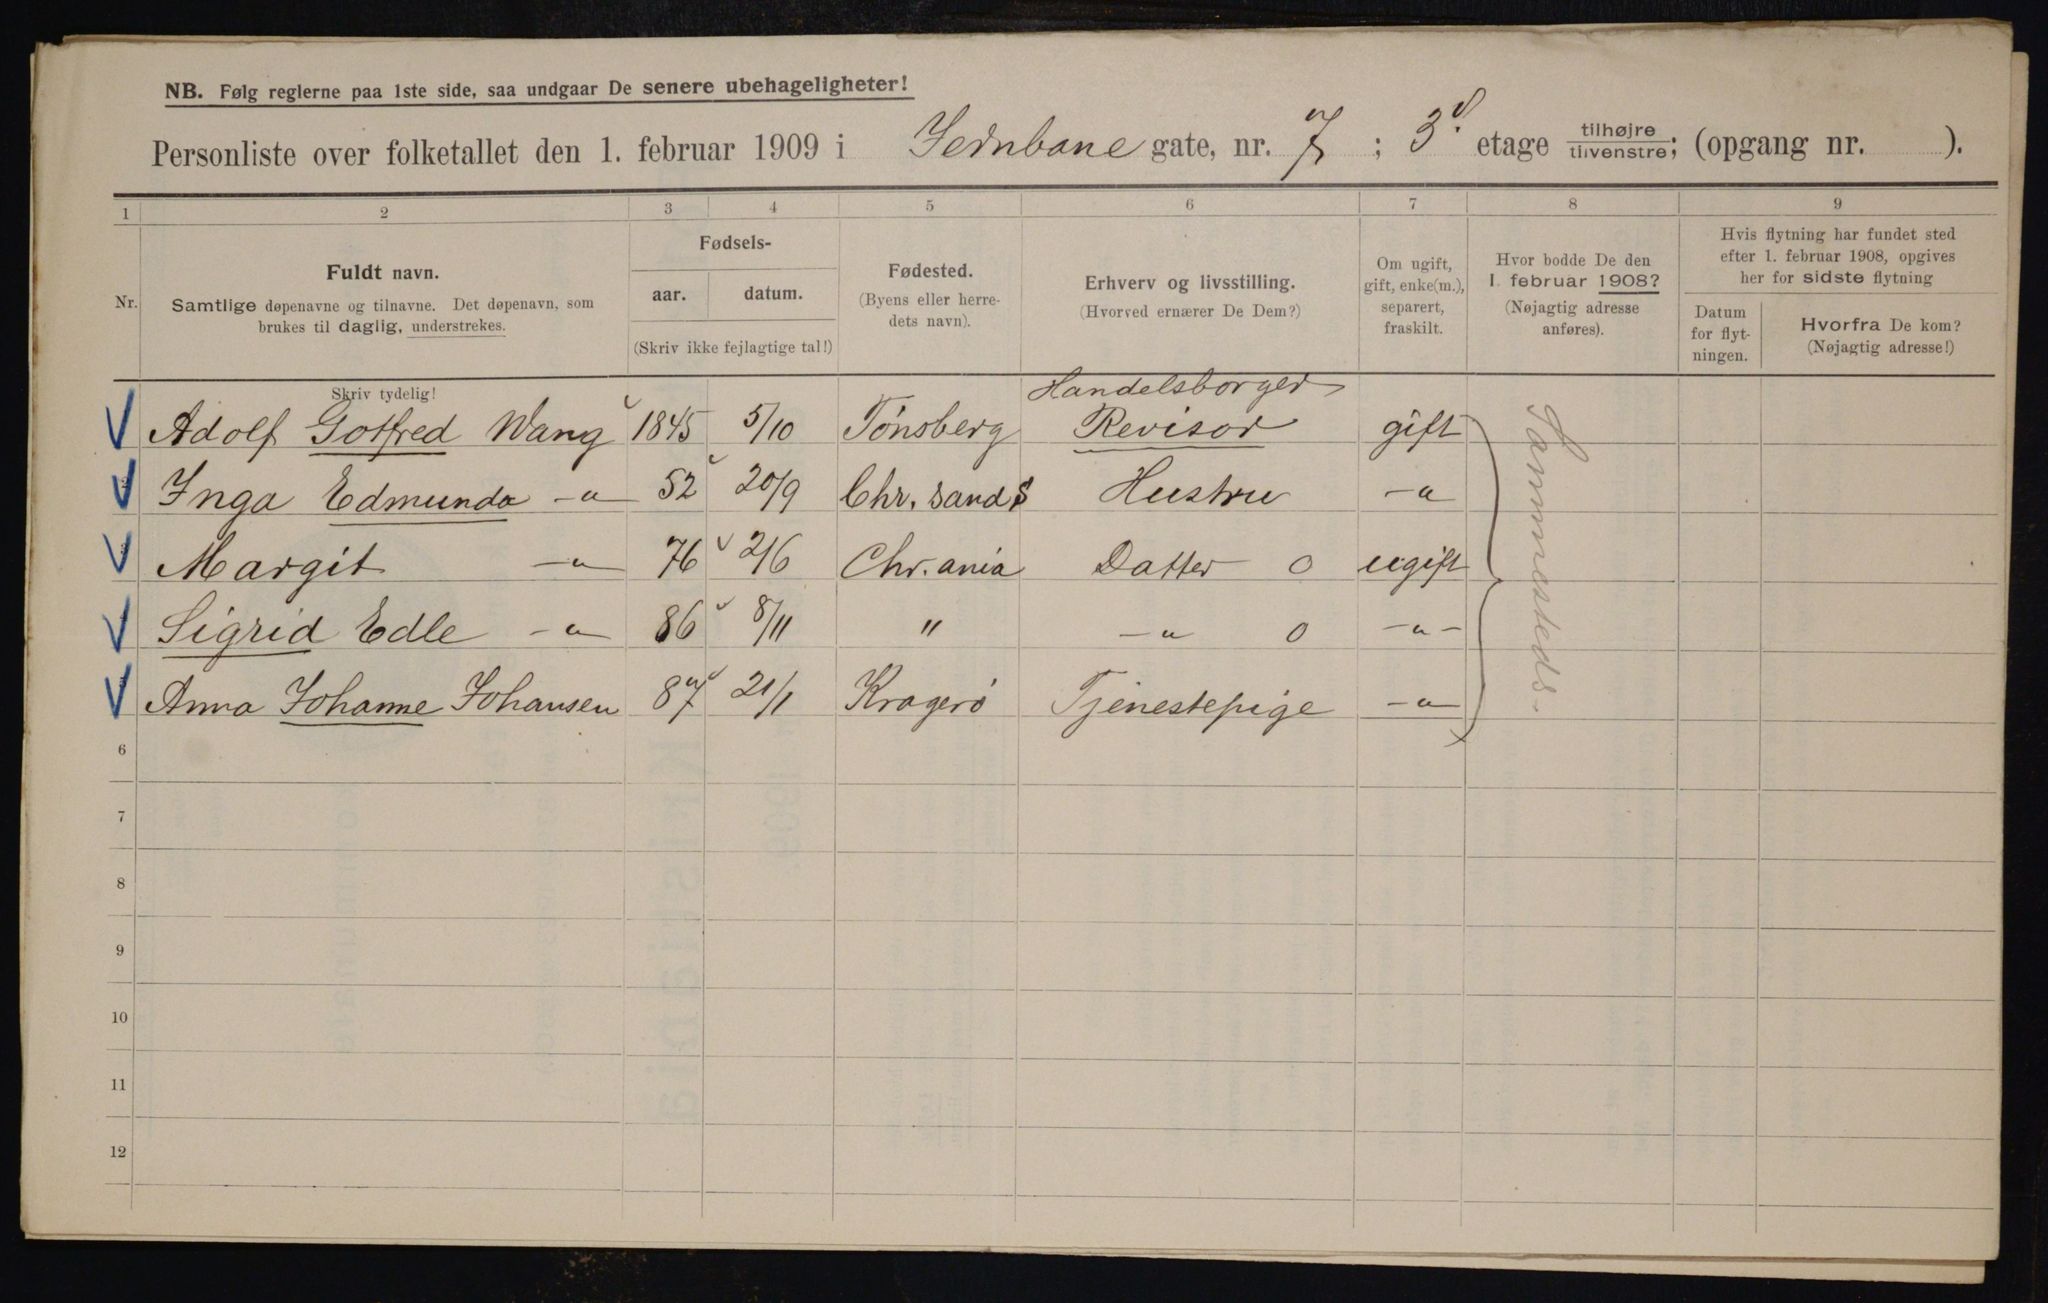 NB. Følg reglerne paa 1ste side, saa undgaar De senere ubehageligheter!
Personliste over folketallet den 1. februar 1909 i Jernbane gate, nr. 7 ; 3d. etage tilhøjre / tilvenstre; (opgang nr. ).
1 2 3 4 5 6 7 8 9
Nr.
Fuldt navn.
Samtlige døpenavne og tilnavne. Det døpenavn, som
brukes til daglig, understrekes.
Fødsels-
aar. datum.
(Skriv ikke fejlagtige tal!)
Fødested.
(Byens eller herre-
dets navn).
Erhverv og livsstilling.
(Hvorved ernærer De Dem?)
Om ugift,
gift, enke(m.),
separert,
fraskilt.
Hvor bodde De den
1. februar 1908?
(Nøjagtig adresse
anføres).
Hvis flytning har fundet sted
efter 1. februar 1908, opgives
her for sidste flytning
Datum
for flyt-
ningen.
Hvorfra De kom?
(Nøjagtig adresse!)
Skriv tydelig!
Handelsborger
Adolf Gotfred Wang 1845 5/10 Tønsberg Revisor gift
Inga Edmunda -"- 52 20/9 Chr. sands Hustru -"-
Margit -"- 76 2/6 Chr. ania Datter 0 ugift
Sigrid Edle -"- 86 8/11 " -"- 0 -"-
Anna Johanne Johansen 87 21/1 Kragerø Tjenestepige -"-
Sammesteds.
6
7
8
9
10
11
12